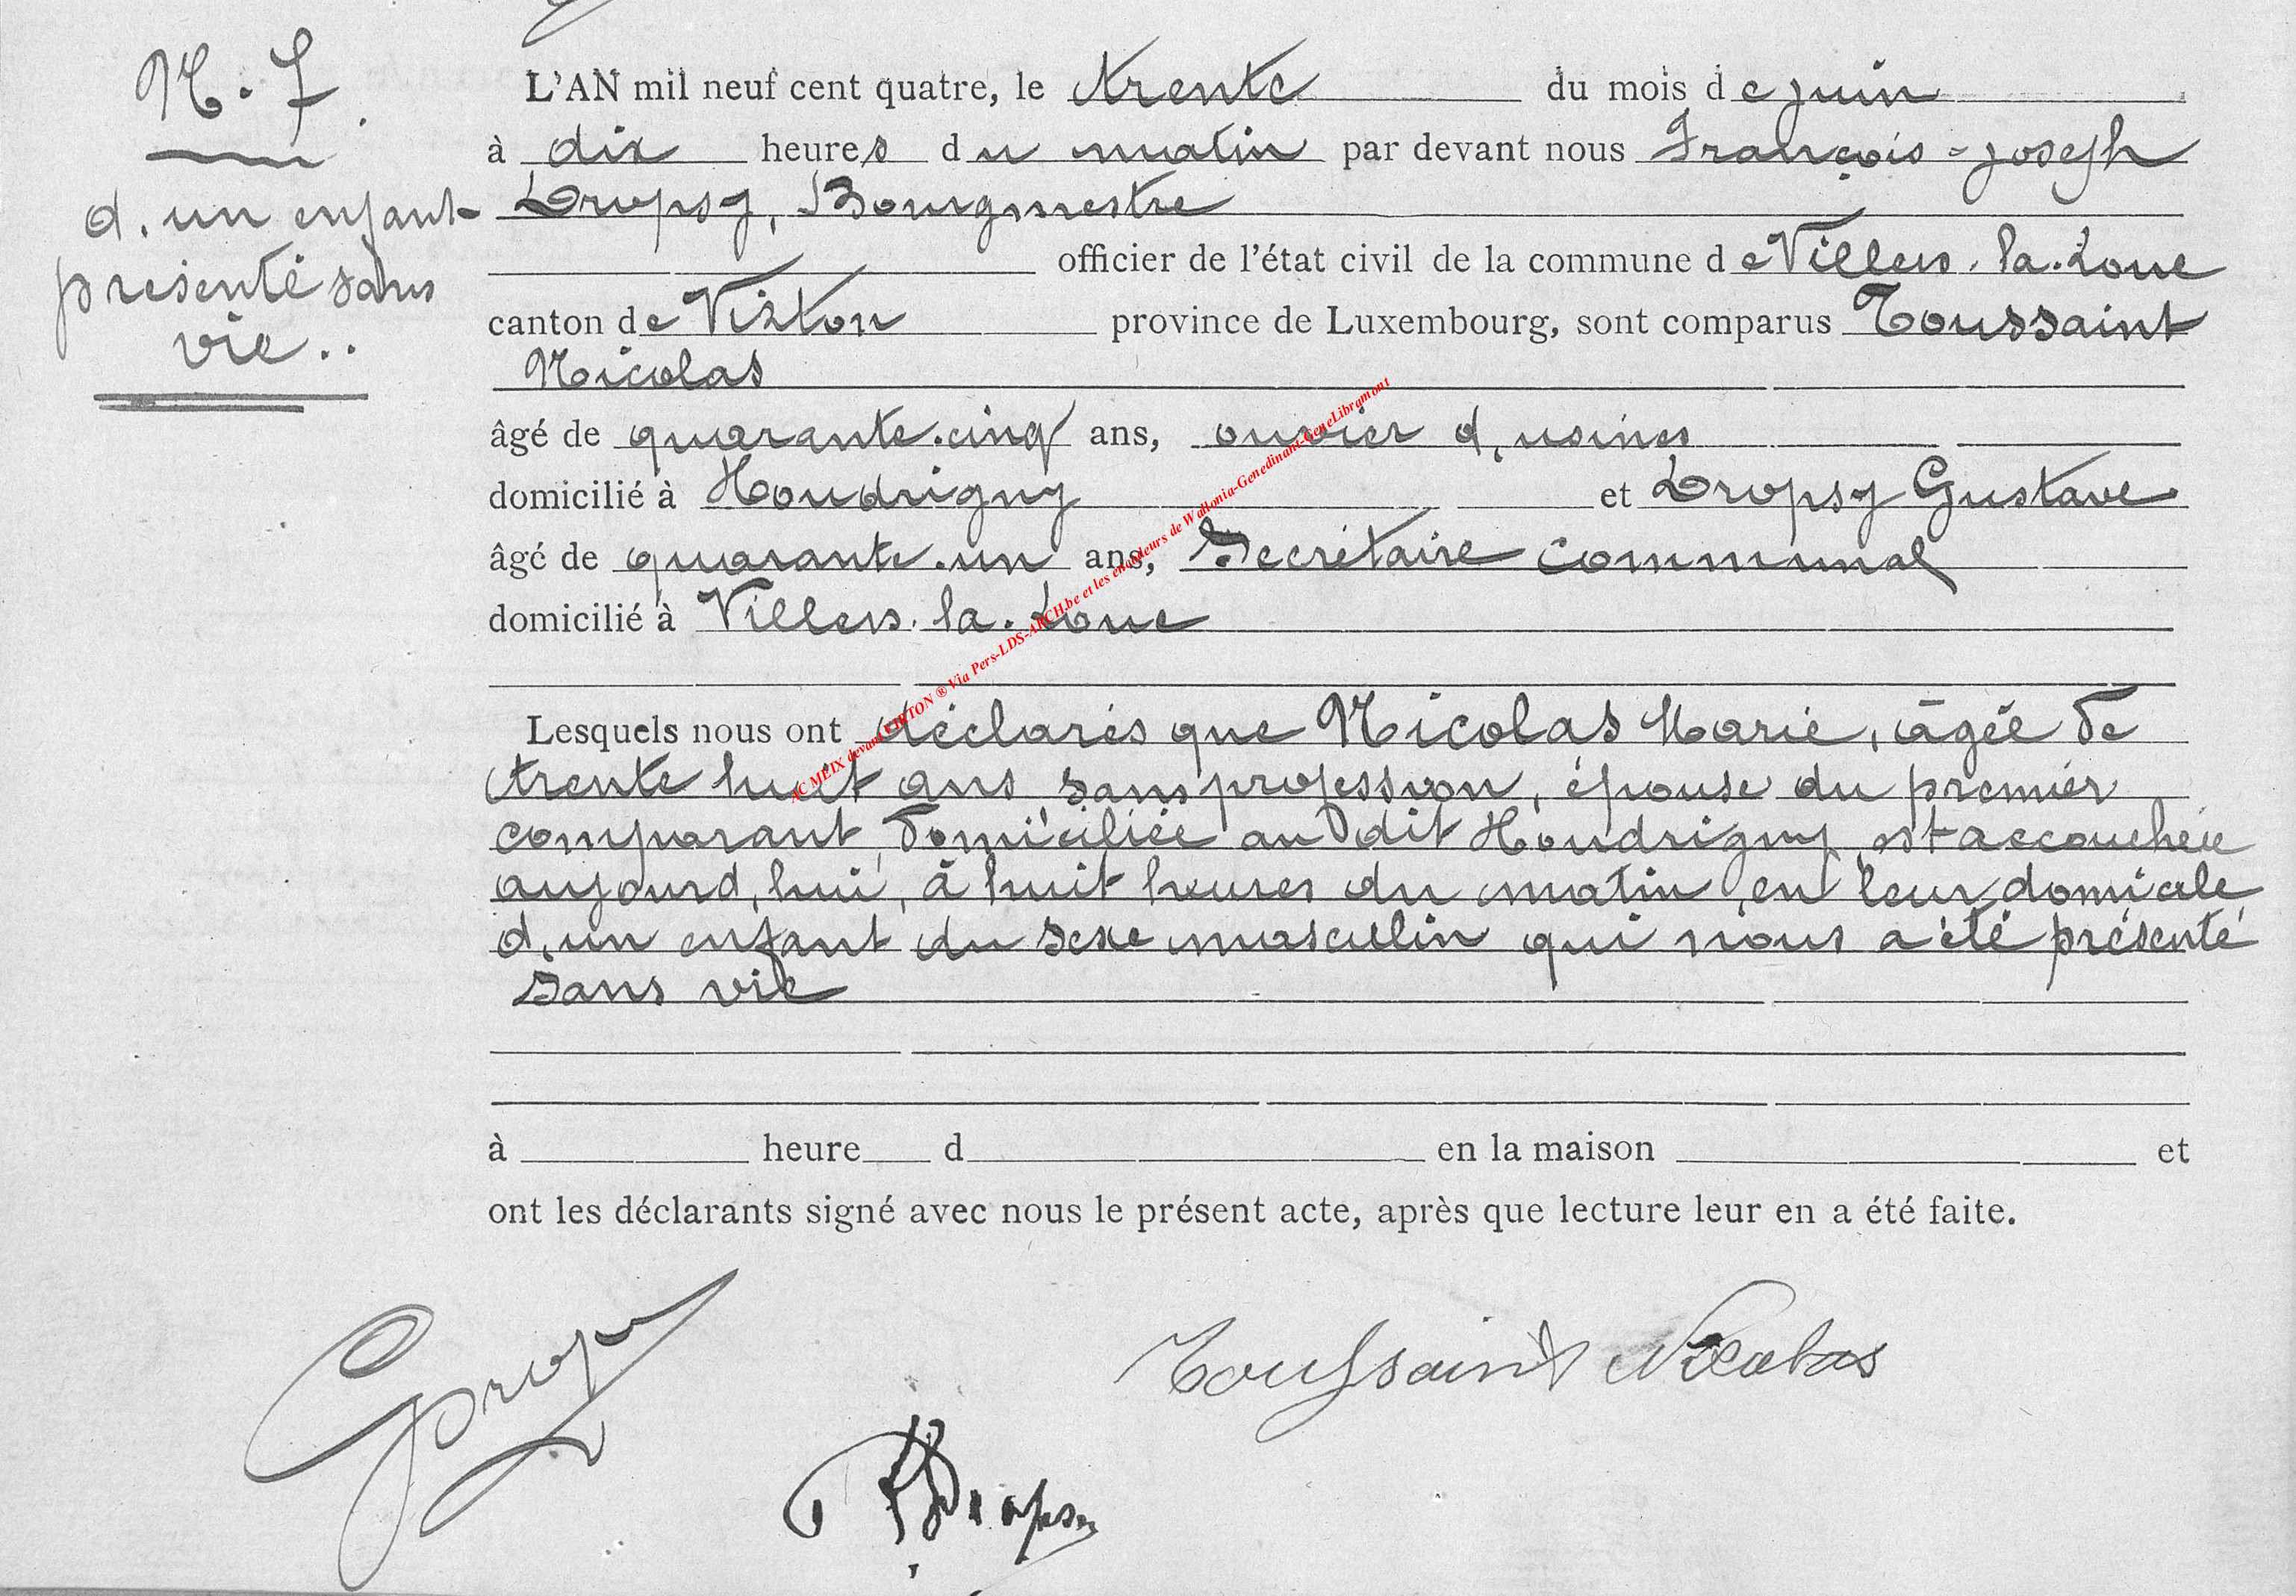 N. 7.
d'un enfant
présenté sans
vie..
L'AN mil neuf cent quatre, le trente du mois de juin
à dix heures du matin par devant nous François-joseph
Dropsy, Bourgmestre
officier de l'état civil de la commune de Villers-la-Loue
canton de Virton province de Luxembourg, sont comparus Toussaint
Nicolas
âgé de quarante-cinq ans, ouvrier d'usines
domicilié à Houdrigny et Dropsy Gustave
âgé de quarante-un ans, Secrétaire communal
domicilié à Villers-la-Loue
Lesquels nous ont déclarés que Nicolas Marie, âgée de
trente huit ans sans profession, épouse du premier
comparant, domiciliée au dit Houdrigny est accouchée
aujourd'hui, à huit heures du matin, en leur domicile
d'un enfant du sexe masculin qui nous a été présenté
sans vie
à heure d en la maison et
ont les déclarants signé avec nous le présent acte, après que lecture leur en a été faite.
Toussaint Nicolas
Dropsy
AC MEIX devant VIRTON ® Via Pers-LDS-ARCH.be et les encodeurs de Wallonia-Genedinant-GeneLibramont